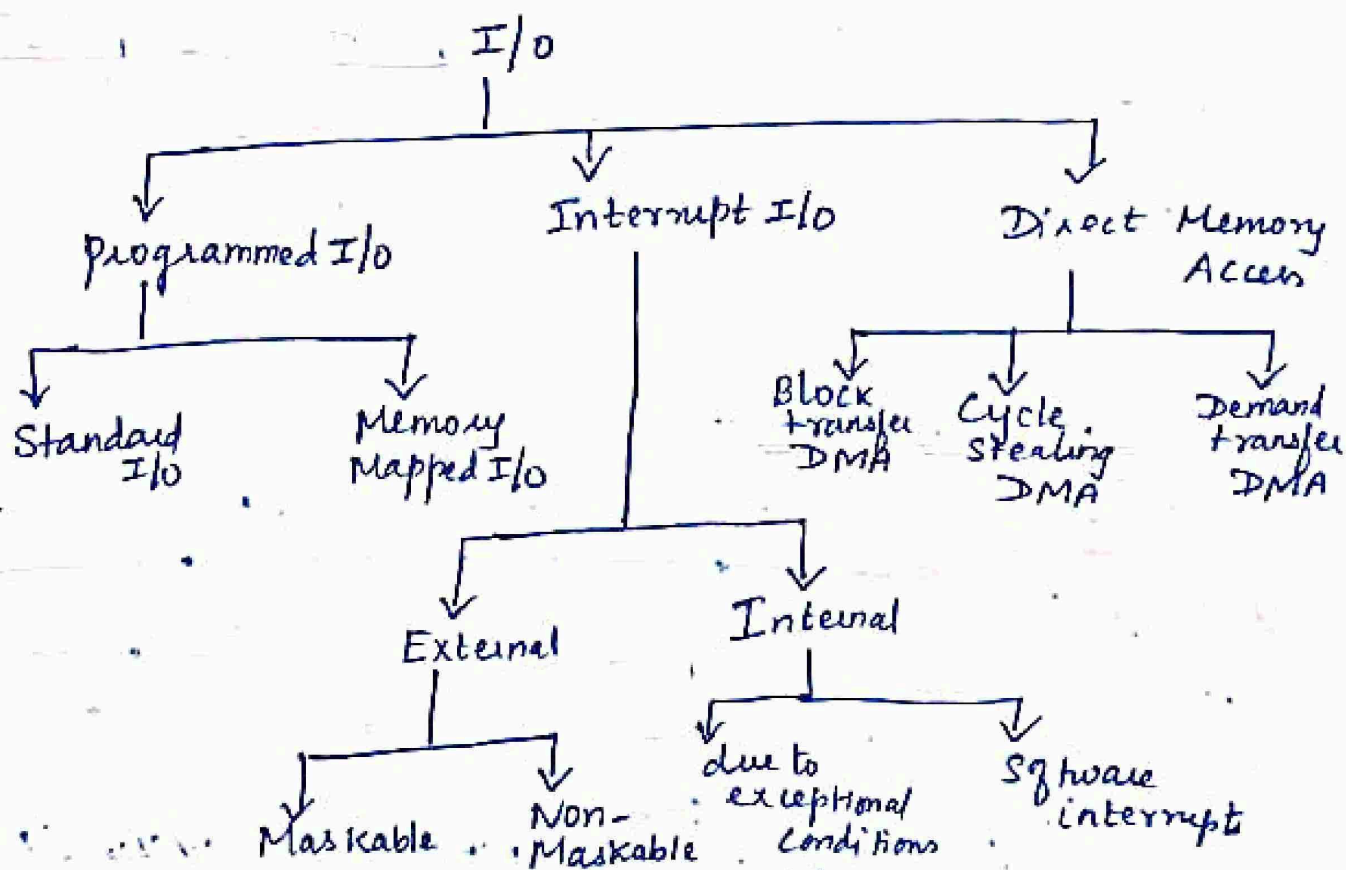 I/O
Programmed I/O
Interrupt I/O
Direct Memory
Access
Standard
I/O
Memory
Mapped I/O
Block
transfer
DMA
Cycle
Stealing
DMA
Demand
transfer
DMA
External
Internal
Maskable
Non-
Maskable
due to
exceptional
conditions
Software
interrupt